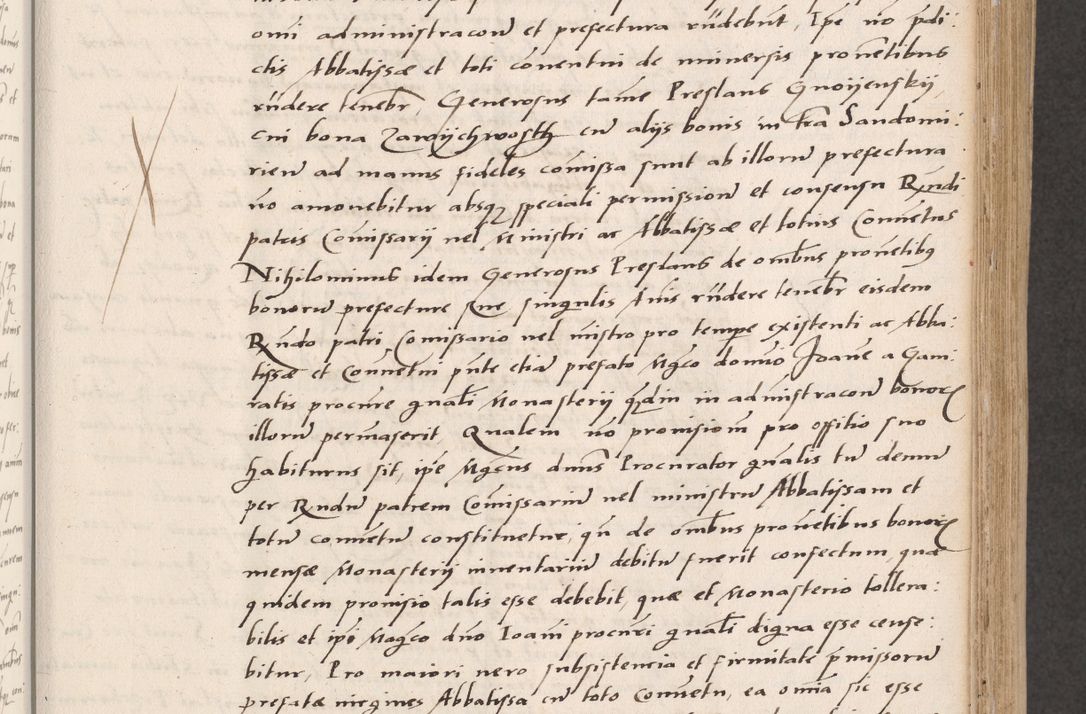 omi administracone et prefectura rñdebunt, Ipse vo pdi:
ctis Abbatissæ et toti conventui de universis provetibus
rñdere tenebr, Generosus tame Preslaus Gnoijenskij,
cui bona Zawijchwosth cu alijs bonis in tra Sandomi:
rien ad manus fideles comissa sunt ab illoru prefectura
vo amovebitur absq speciali permissione et consensu Rndi
patris Comissarij vel Ministri ac Abbatissæ et totius Conuetus
Nihilominus idem Generosus Preslaus de omibus provetibus
bonoru prefecture sue singulis Anis rñdere tenebr eisdem
Rndo patri Comissario vel mistro pro tempe existenti ac Abba:
tissæ et Conuetui pnte etia prefato Mgco domino Joane a Gam:
ratis procure gnali Monasterij qdiu in administracone bonor
illoru permaserit, Qualem vo provisione pro offitio suo
habiturus sit, ipe Mgcus dnus Procurator gnalis tu demu
per Rndu patrem Comissariu vel ministru Abbatissam et
totu conuetu constituetur, qn de omibus provetibus bonor
mensæ Monasterij inventariu debitu fuerit confectum, quæ
quidem provisio talis esse debebit, quæ et Monasterio tollera:
bilis et ipi Magco dno Ioani procuri gnali digna esse cense:
bitur, Pro maiori vero subsistencia et firmitate pmissoru
prefatæ virgines Abbatissa cu toto Conuetu, ea omia sic esse